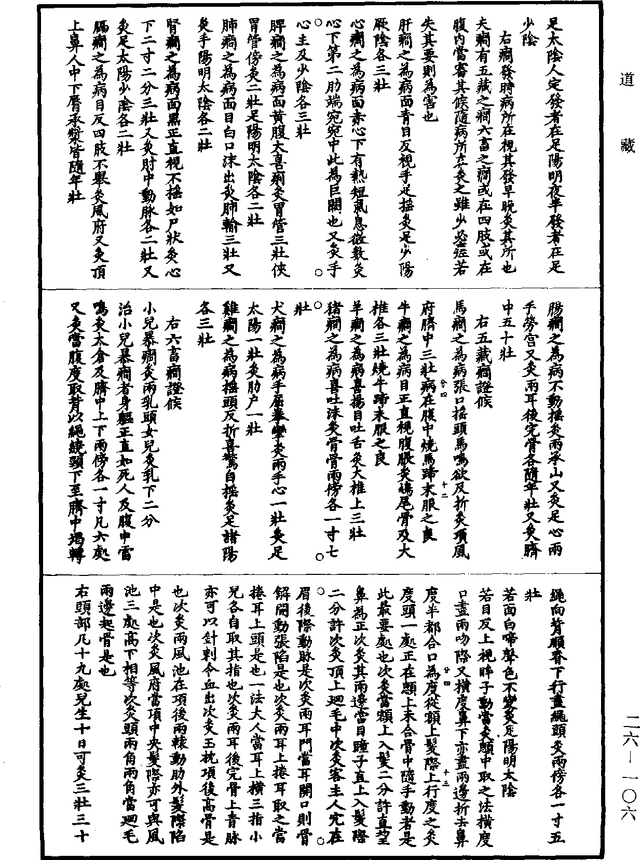 道藏
足太陰人定發者在足陽明夜半發者在足
少陰
右癇發時病所在視其發早晚灸其所也
夫癇有五藏之癇六畜之癇或在四肢或在
腹內當審其候隨病所在灸之雖少必差若
失其要則為害也
肝癇之為病面青目反視手足搖灸足少陽
厥陰各三壯
心癇之為病面赤心下有熱短氣息微數灸
心下第二肋端宛宛中此為巨闕也又灸手
心主及少陰各三壯
脾癇之為病面黃腹大喜痢灸胃管三壯俠
胃管傍灸二壯足陽明太陰各二壯
肺癇之為病面目白口沫出灸肺輸三壯又
灸手陽明太陰各二壯
腎癇之為病面黑正直視不搖如尸狀灸心
下二寸二分三壯又灸肘中動脉各二壯又
灸足太陽少陰各二壯
膈癇之為病目反四肢不舉灸風府又灸頂
上鼻人中下脣承漿皆隨年壯
腸癇之為病不動搖灸兩承山又灸足心兩
手勞宮又灸兩耳後完骨各隨年壯又灸臍
中五十壯
右五藏癇證候
馬癇之為病張口搖頭馬鳴欲反折灸項風
府臍中三壯病在腹中燒馬蹄末服之良
牛癇之為病目正直視腹脹灸鳩尾骨及大
椎各三壯燒牛蹄末服之良
羊癇之為病喜揚目吐舌灸大椎上三壯
豬癇之為病喜吐沫灸完骨兩傍各一寸七
壯
犬癇之為病手屈拳攣灸兩手心一壯灸足
太陽一壯灸肋戶一壯
雞癇之為病搖頭反折喜驚自搖灸足諸陽
各三壯
右六畜癇證候
小兒暴癇灸兩乳頭女兒灸乳下二分
治小兒暴癇者身軀正直如死人及腹中雷
鳴灸太倉及臍中上下兩傍各一寸凡六處
又灸當腹度取背以繩繞頸下至臍中竭轉
繩向背順脊下行盡繩頭灸兩傍各一寸五
壯
若面白啼聲色不變灸足陽明太陰
若目反上視眸子動當灸顖中取之法橫度
口盡兩吻際又橫度鼻下亦盡兩邊折去鼻
度半都合口為度從額上髮際上行度之灸
度頭一處正在顖上未合骨中隨手動者是
此最要處也次灸當額上入髮二分許直望
鼻為正次灸其兩邊當目瞳子直上入髮際
二分許次灸頂上迴毛中次灸客主人穴在
眉後際動脉是次灸兩耳門當耳開口則骨
解開動張陷是也次灸兩耳上捲耳取之當
捲耳上頭是也一法大人當耳上橫三指小
兒各自取其指也次灸兩耳後完骨上青脉
亦可以針刺令血出次灸玉枕項後高骨是
也次灸兩風池在項後兩轅動肋外髮際陷
中是也次灸風府當項中央髮際亦可與風
池三處高下相等次灸頭兩角兩角當迴毛
兩邊起骨是也
右頭部凡十九處兒生十日可灸三壯三十
二六—一〇六